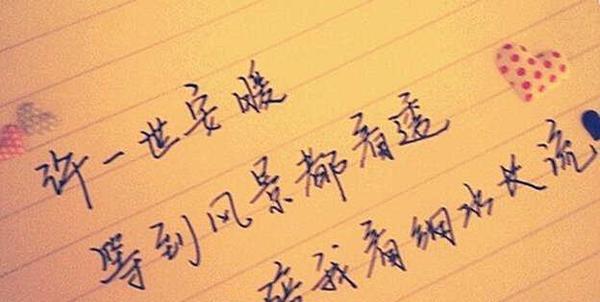 许一世安暖
等到风景都看透
陪我看细水长流